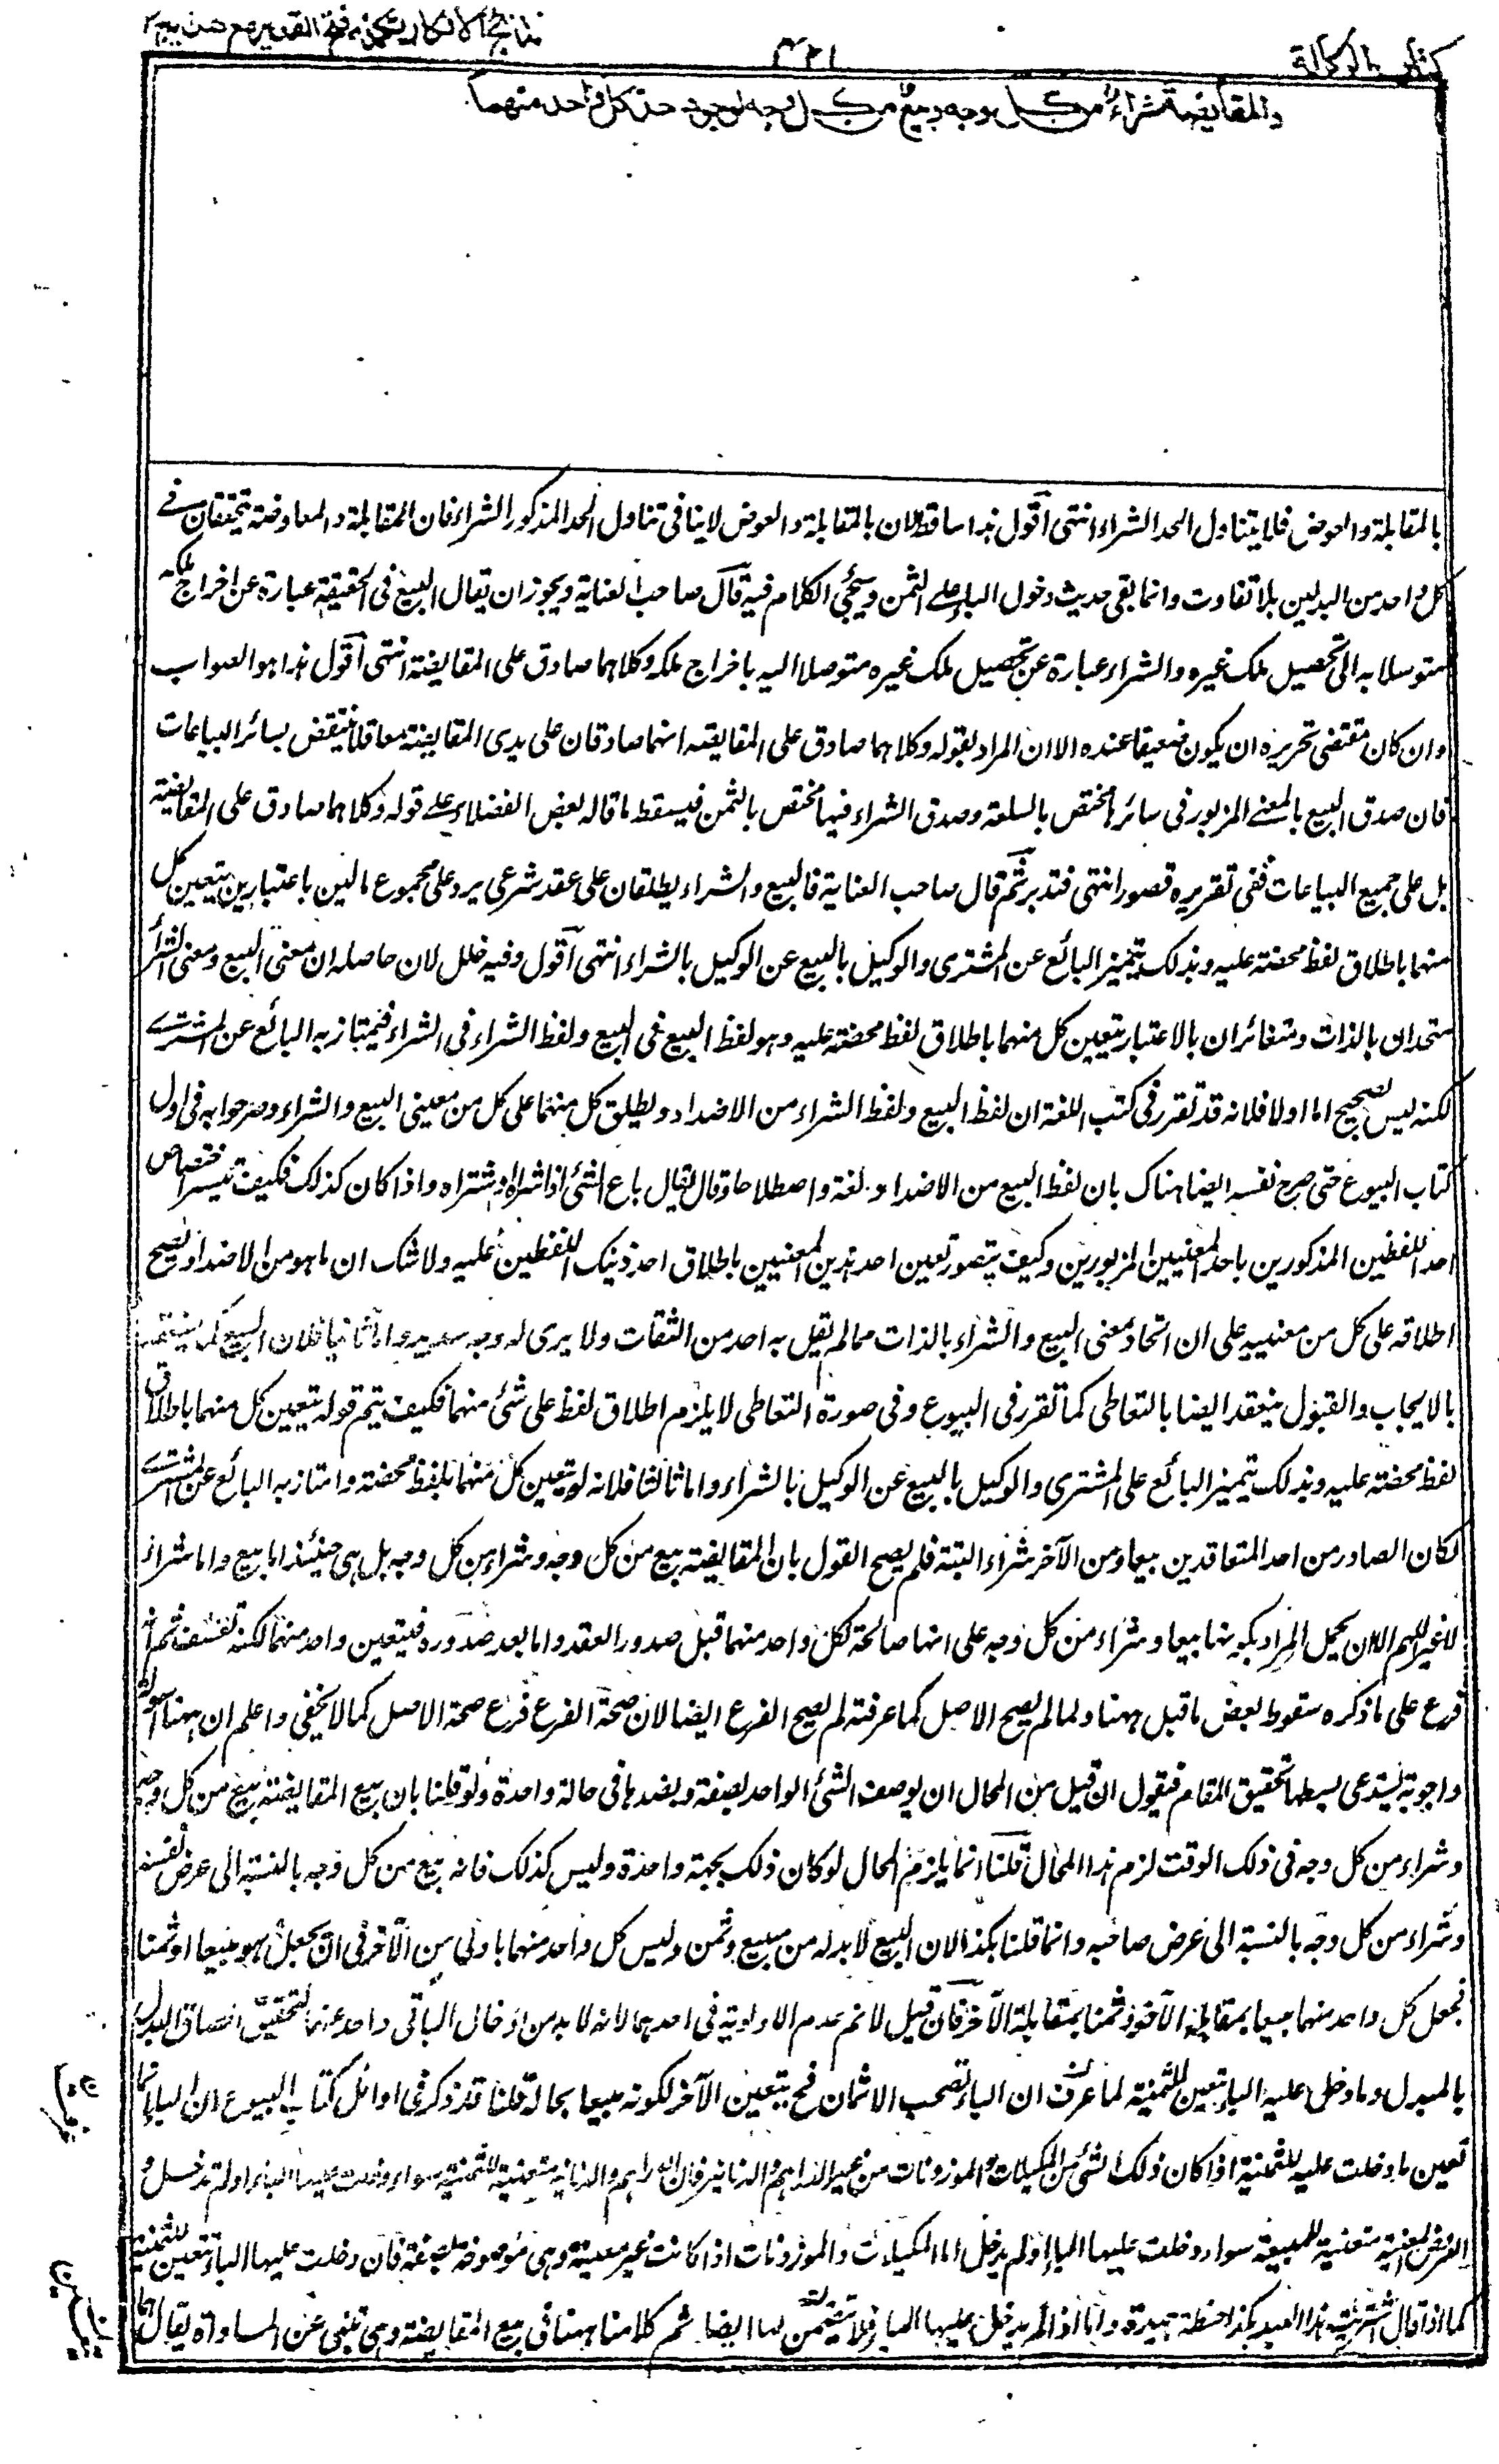 كتاب الوكالة
نتائج الافكار تكملة فتح القدير مع هدايه ج ٣
والمقايضة شراء من كل وجه وبيع من كل وجه لوجود حد كل واحد منهما
بالمقابلة والعوض فلا يتناول الحد الشراء انتهى اقول هذا ساقط لان بالمقابلة والعوض لا ينافى تناول الحد المذكور الشراء فان المقابلة والمعاوضة تتحققان فے
كل واحد من البدلين بلا تفاوت وانما بقى حديث دخول الباء علے الثمن وسيجئ الكلام فيه قال صاحب العناية ويجوز ان يقال البيع فى الحقيقة عبارة عن اخراج ملكه
متوسلا به الى تحصيل ملك غيره والشراء عبارة عن تحصيل ملك غيره متوصلا اليه باخراج ملكه وكلاهما صادق على المقايضة انتهى اقول هذا هو الصواب
وان كان مقتضى تحريره ان يكون ضعيفا عنده الا ان المراد بقوله وكلاهما صادق على المقايضه انهما صادقان على يدى المقايضة معا فلا ينتقض بسائر البياعات
فان صدق البيع بالمعنے المزبور فى سائرها مختص بالسلعة وصدق الشراء فيها مختص بالثمن فيسقط ما قاله بعض الفضلاء علے قوله وكلاهما صادق على المقايضة
بل على جميع البياعات ففى تقريره قصور انتهى فتدبر ثم قال صاحب العناية فالبيع والشراء يطلقان على عقد شرعى يرد على مجموع مالين باعتبارين يتعين كل
منهما باطلاق لفظ محضته عليه وبذلك يتميز البائع عن المشترى والوكيل بالبيع عن الوكيل بالشراء انتهى اقول وفيه خلل لان حاصله ان معنى البيع ومعنى الشراء
متحدان بالذات ومتغائران بالاعتبار يتعين كل منهما باطلاق لفظ محضته عليه وهو لفظ البيع فى البيع ولفظ الشراء فى الشراء فيمتاز به البائع عن المشترے
لكنه ليس بصحيح اما اولا فلانه قد تقرر فى كتب اللغة ان لفظ البيع ولفظ الشراء من الاضداد ويطلق كل منهما على كل من معينى البيع والشراء وصرحوا به فى اول
كتاب البيوع حتى صرح نفسه ايضا هناك بان لفظ البيع من الاضداد لغة واصطلاحا وقال يقال باع الشئ اذا شراه او اشتراه واذا كان كذلك فكيف تيسر اختصاص
احد اللفظين المذكورين باحد المعنيين المزبورين وكيف يتصور تعين احد هذين المعنيين باطلاق احد ذينك اللفظين عليه ولا شك ان ما هو من الاضداد يصح
اطلاقه على كل من معنييه على ان اتحاد معنى البيع والشراء بالذات مما لم يقل به احد من الثقات ولا يرى له وجه سديد واما ثانيا فلان البيع كما ينعقد
بالايجاب والقبول ينعقد ايضا بالتعاطى كما تقرر فى البيوع وفى صورة التعاطى لا يلزم اطلاق لفظ على شئ منهما فكيف يتم قوله يتعين كل منهما باطلاق
لفظ محضته عليه وبذلك يتميز البائع على المشترى والوكيل بالبيع عن الوكيل بالشراء واما ثالثا فلانه لو تعين كل منهما بلفظ محضته وامتاز به البائع عن المشترے
لكان الصادر من احد المتعاقدين بيعا ومن الآخر شراء البتة فلم يصح القول بان المقايضة بيع من كل وجه وشراء من كل وجه بل هى حينئذ اما بيع واما شراء
لا غير اللهم الا ان يحمل المراد بكونها بيعا وشراء من كل وجه على انها صالحة لكل واحد منهما قبل صدور العقد واما بعد صدوره فيتعين واحد منهما لكنه تعسف ثم انه
فرع على ما ذكره سقوط بعض ما قبل ههنا ولما لم يصح الاصل كما عرفته لم يصح الفرع ايضا لان صحة الفرع فرع صحة الاصل كما لا يخفى واعلم ان ههنا اسولة
واجوبة يستدعى بسطها تحقيق المقام فيقول ان قيل من المحال ان يوصف الشئ الواحد بصفة وبضدها فى حالة واحدة ولو قلنا بان بيع المقايضة بيع من كل وجه
وشراء من كل وجه فى ذلك الوقت لزم هذا المحال قلنا انما يلزم المحال لو كان ذلك بجهة واحدة وليس كذلك فانه بيع من كل وجه بالنسبة الى عرض نفسه
وشراء من كل وجه بالنسبة الى عرض صاحبه وانما قلنا هكذا لان البيع لا بد له من مبيع وثمن وليس كل واحد منهما باولى من الآخر فى ان يجعل هو مبيعا او ثمنا
فجعل كل واحد منهما مبيعا بمقابلة الآخر وثمنا بمقابلة الآخر فان قيل لا نم عدم الاولوية فى احدهما لانه لا بد من ادخال الباء فى واحد منهما لتحقيق الصاق البدل
بالمبدل وما دخل عليه الباء يتعين للثمنية لما عرف ان الباء تصحب الاثمان فح يتعين الآخر لكونه مبيعا بحاله قلنا قد ذكر فى اوائل كتاب البيوع ان الباء انما
تعين ما دخلت عليه للثمنية اذا كان ذلك الشئ من المكيلات والموزونات من غير الدراهم والدنانير فان الدراهم والدنانير متعينة للثمنية سواء دخلت عليها الباء او لم تدخل و
العرض المعينة متعينة للمبيعية سواء دخلت عليها الباء او لم يدخل اما المكيلات والموزونات اذا كانت غير معينة وهى موصوفة بصفة فان دخلت عليها الباء تتعين للثمنية
كما اذا قال اشتريت هذا العبد بكذا حنطة جيدة واما اذا لم يدخل عليها الباء فلا ثم كلامنا ههنا فى بيع المقايضة وهى تنبى عن المساواة يقال هما